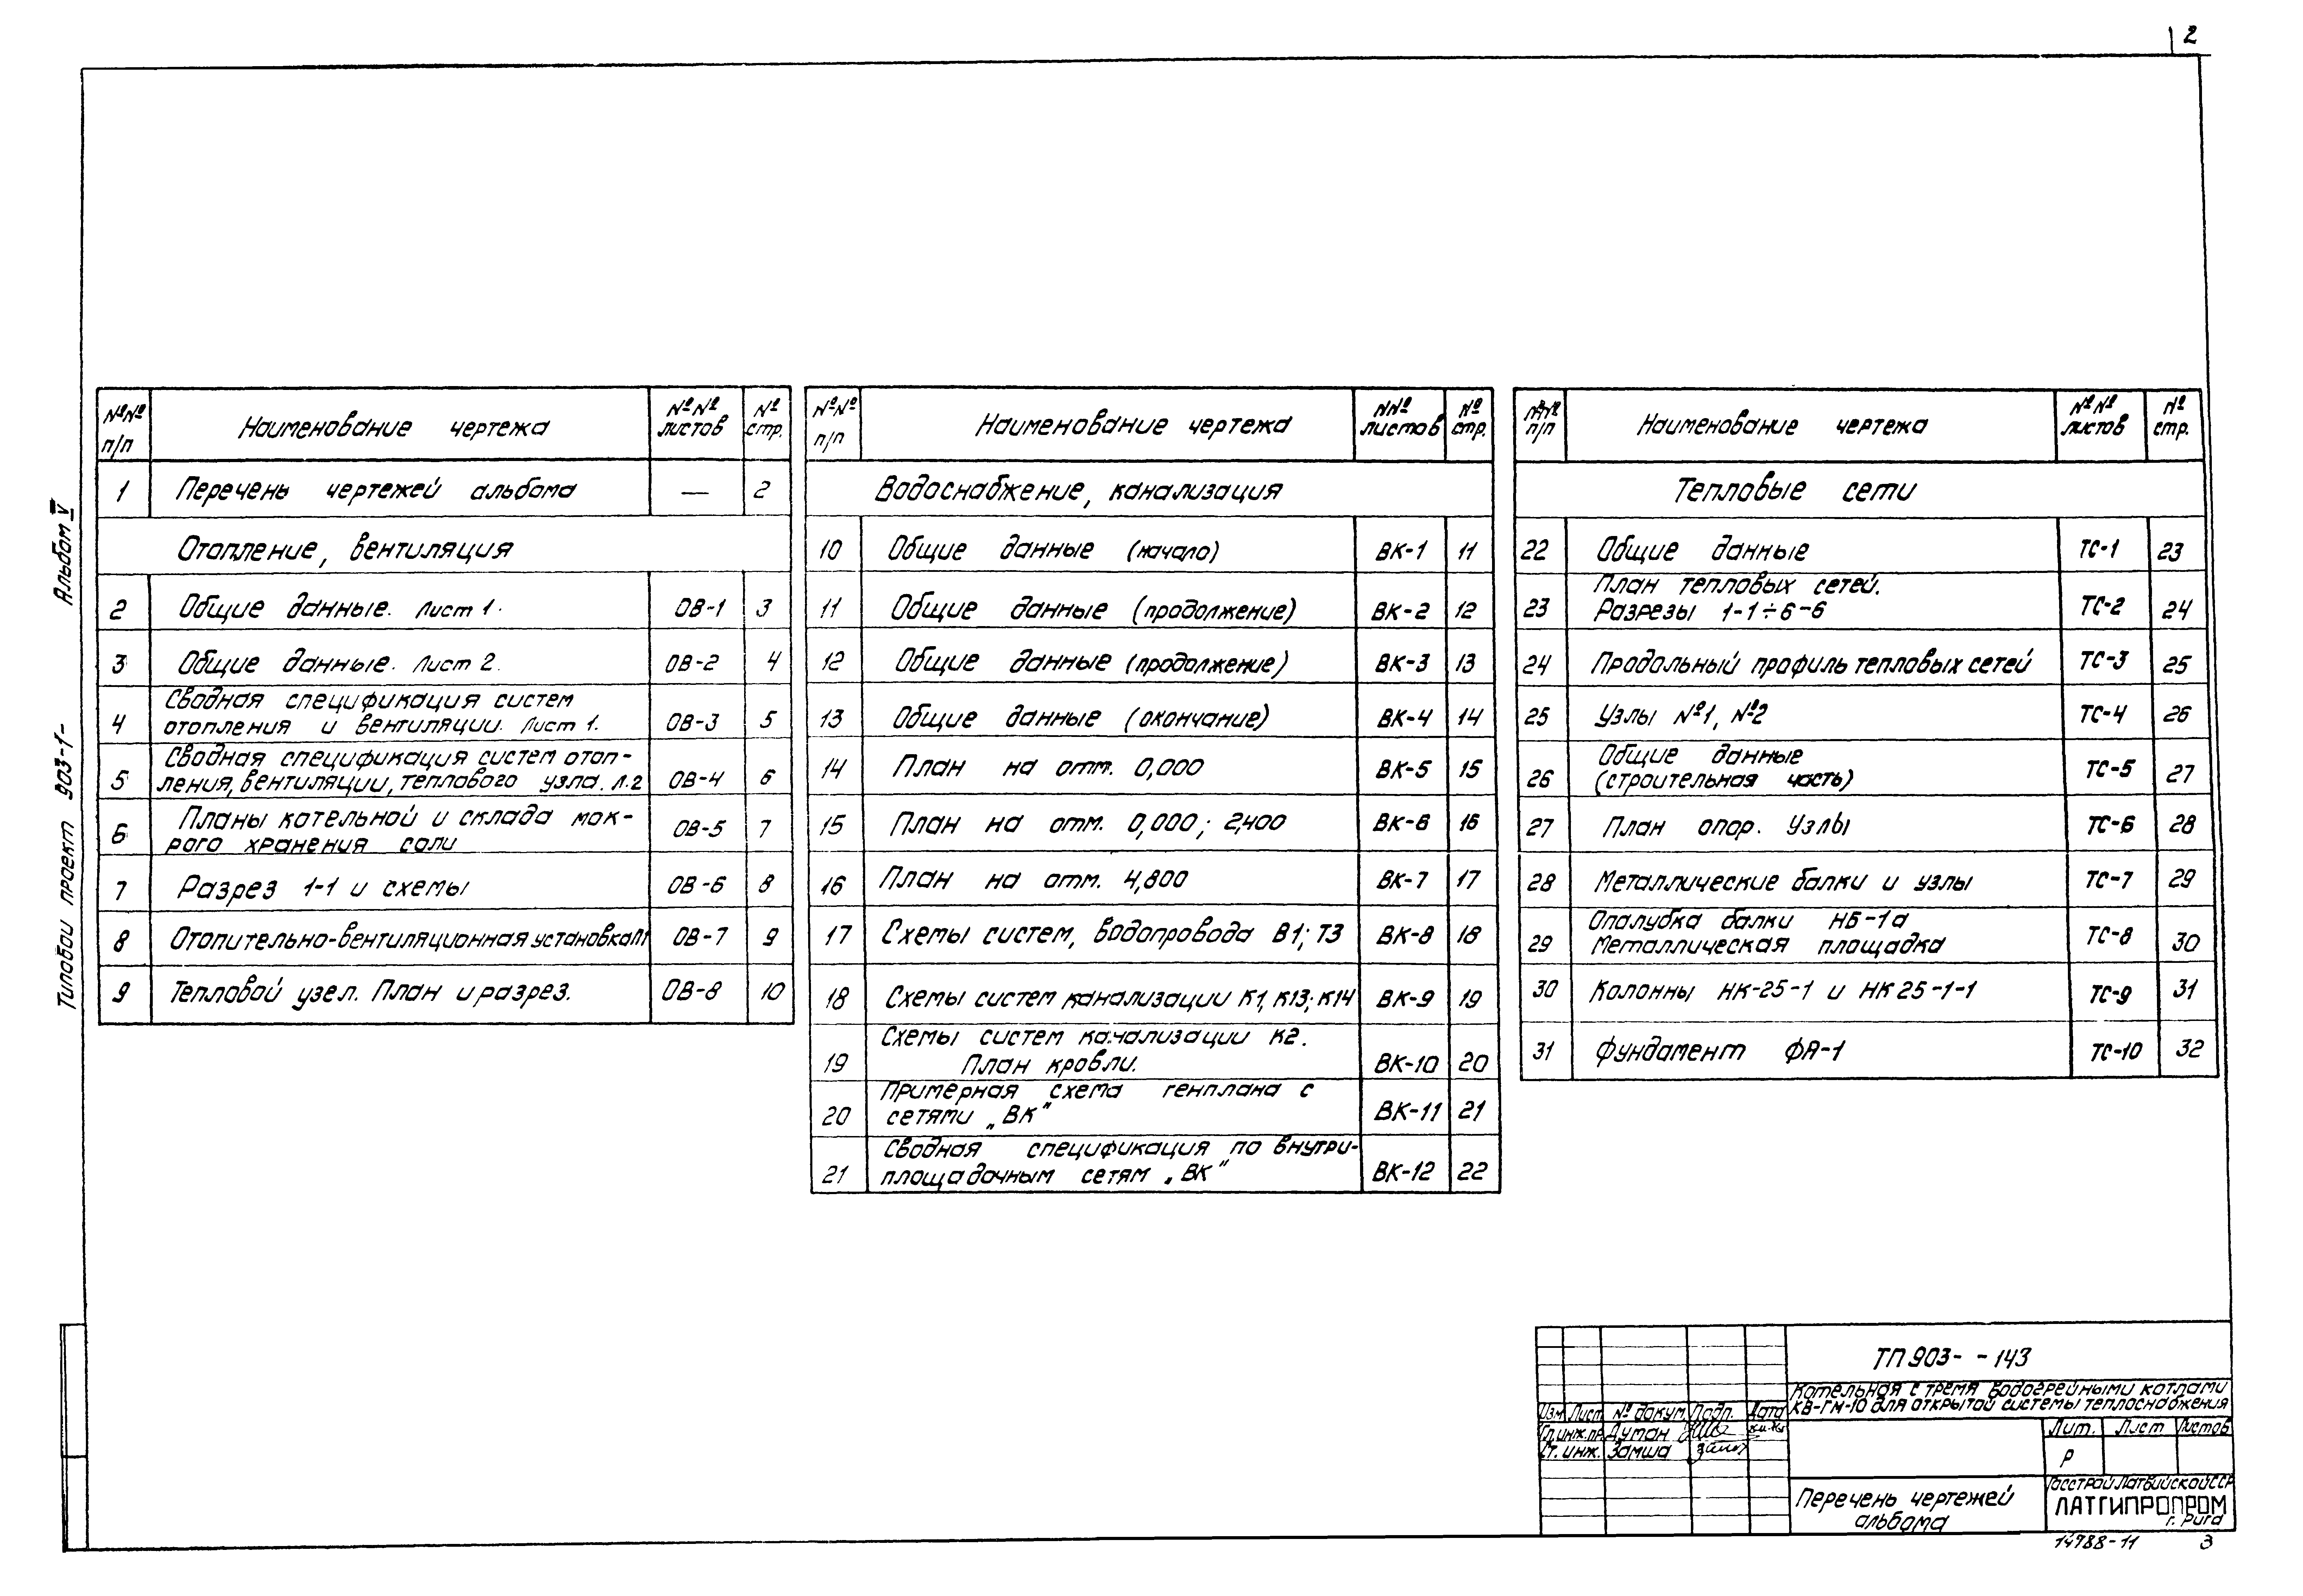 2
Альбом V
Типовой проект 903-1-
№№ п/п Наименование чертежа №№ листов № стр.
1 Перечень чертежей альбома — 2
Отопление, вентиляция
2 Общие данные. Лист 1. ОВ-1 3
3 Общие данные. Лист 2. ОВ-2 4
4 Сводная спецификация систем
отопления и вентиляции. Лист 1. ОВ-3 5
5 Сводная спецификация систем отоп-
ления, вентиляции, теплового узла. л.2 ОВ-4 6
6 Планы котельной и склада мок-
рого хранения соли ОВ-5 7
7 Разрез 1-1 и схемы ОВ-6 8
8 Отопительно-вентиляционная установка П1 ОВ-7 9
9 Тепловой узел. План и разрез. ОВ-8 10
№№ п/п Наименование чертежа №№ листов № стр.
Водоснабжение, канализация
10 Общие данные (начало) ВК-1 11
11 Общие данные (продолжение) ВК-2 12
12 Общие данные (продолжение) ВК-3 13
13 Общие данные (окончание) ВК-4 14
14 План на отм. 0,000 ВК-5 15
15 План на отм. 0,000; 2,400 ВК-6 16
16 План на отм. 4,800 ВК-7 17
17 Схемы систем, водопровода В1; Т3 ВК-8 18
18 Схемы систем канализации К1, К13; К14 ВК-9 19
19 Схемы систем канализации К2.
План кровли. ВК-10 20
20 Примерная схема генплана с
сетями „ВК" ВК-11 21
21 Сводная спецификация по внутри-
площадочным сетям „ВК" ВК-12 22
№№ п/п Наименование чертежа №№ листов № стр.
Тепловые сети
22 Общие данные ТС-1 23
23 План тепловых сетей.
Разрезы 1-1÷6-6 ТС-2 24
24 Продольный профиль тепловых сетей ТС-3 25
25 Узлы №1, №2 ТС-4 26
26 Общие данные
(строительная часть) ТС-5 27
27 План опор. Узлы ТС-6 28
28 Металлические балки и узлы ТС-7 29
29 Опалубка балки НБ-1а
Металлическая площадка ТС-8 30
30 Колонны НК-25-1 и НК 25-1-1 ТС-9 31
31 Фундамент ФА-1 ТС-10 32
ТП 903- -143
Котельная с тремя водогрейными котлами
КВ-ГМ-10 для открытой системы теплоснабжения
Изм Лист № докум. Подп. Дата
Гл.инж.пр. Думан
Ст. инж. Замша
Лит. Лист Листов
Р
Перечень чертежей
альбома
Госстрой Латвийской ССР
ЛАТГИПРОПРОМ
г. Рига
14788-11 3